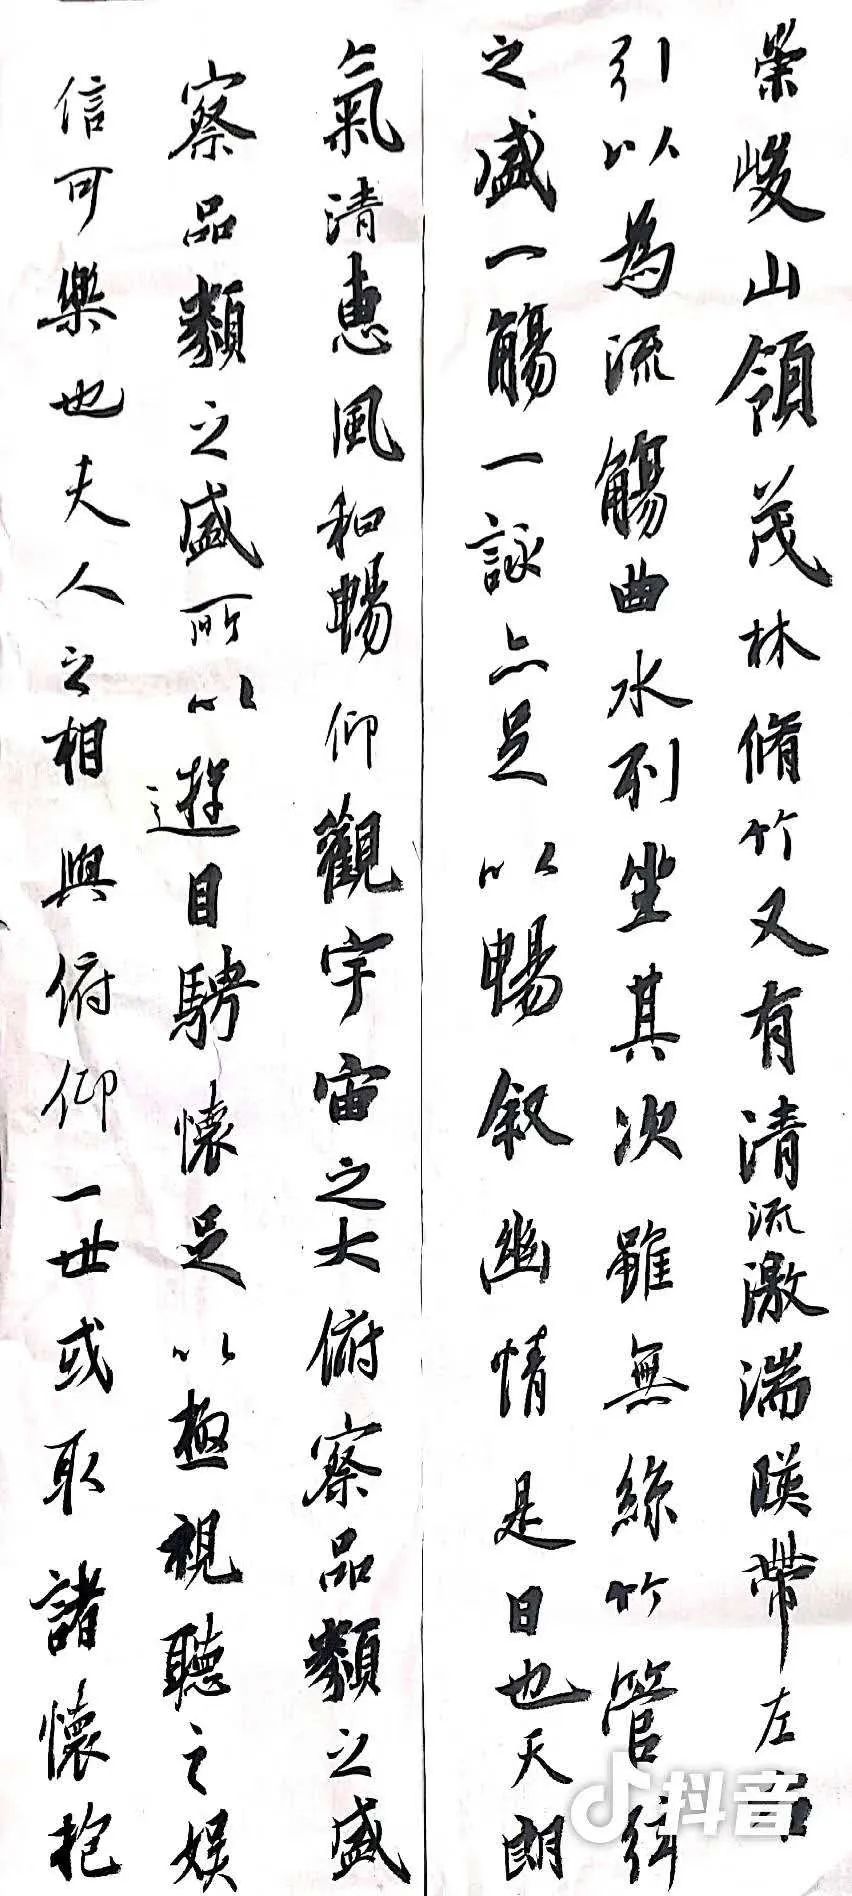 崇峻山領茂林脩竹又有清流激湍暎帶左右
引以為流觴曲水列坐其次雖無絲竹管弦
之盛一觴一詠亦足以暢敘幽情是日也天朗
氣清惠風和暢仰觀宇宙之大俯察品類之盛
察品類之盛所以遊目騁懷足以極視聽之娛
信可樂也夫人之相與俯仰一世或取諸懷抱
抖音